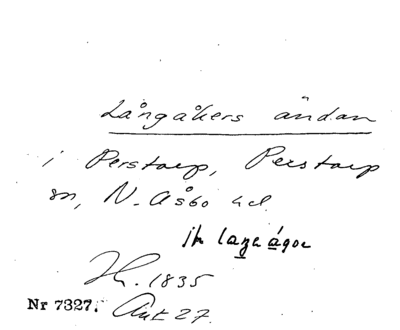 Långåkers ändan
i Perstorp, Perstorp
sn, N. Åsbo hd
ih
H. 1835
Nr 7327. Ant 27.